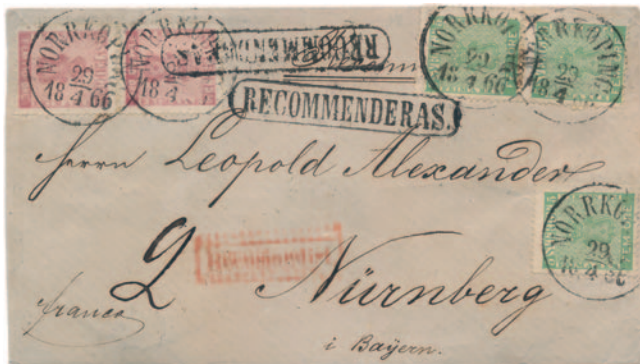 NORRKÖPING 29 4 1866
NORRKÖPING 29 4 1866
RECOMMENDERAS.
NORRKÖPING 29 4 1866
NORRKÖPING 29 4 1866
RECOMMENDERAS.
Herrn Leopold Alexander
NORRKÖPING 29 4 1866
2
Recomandirt
Nürnberg
franco
i Bayern.